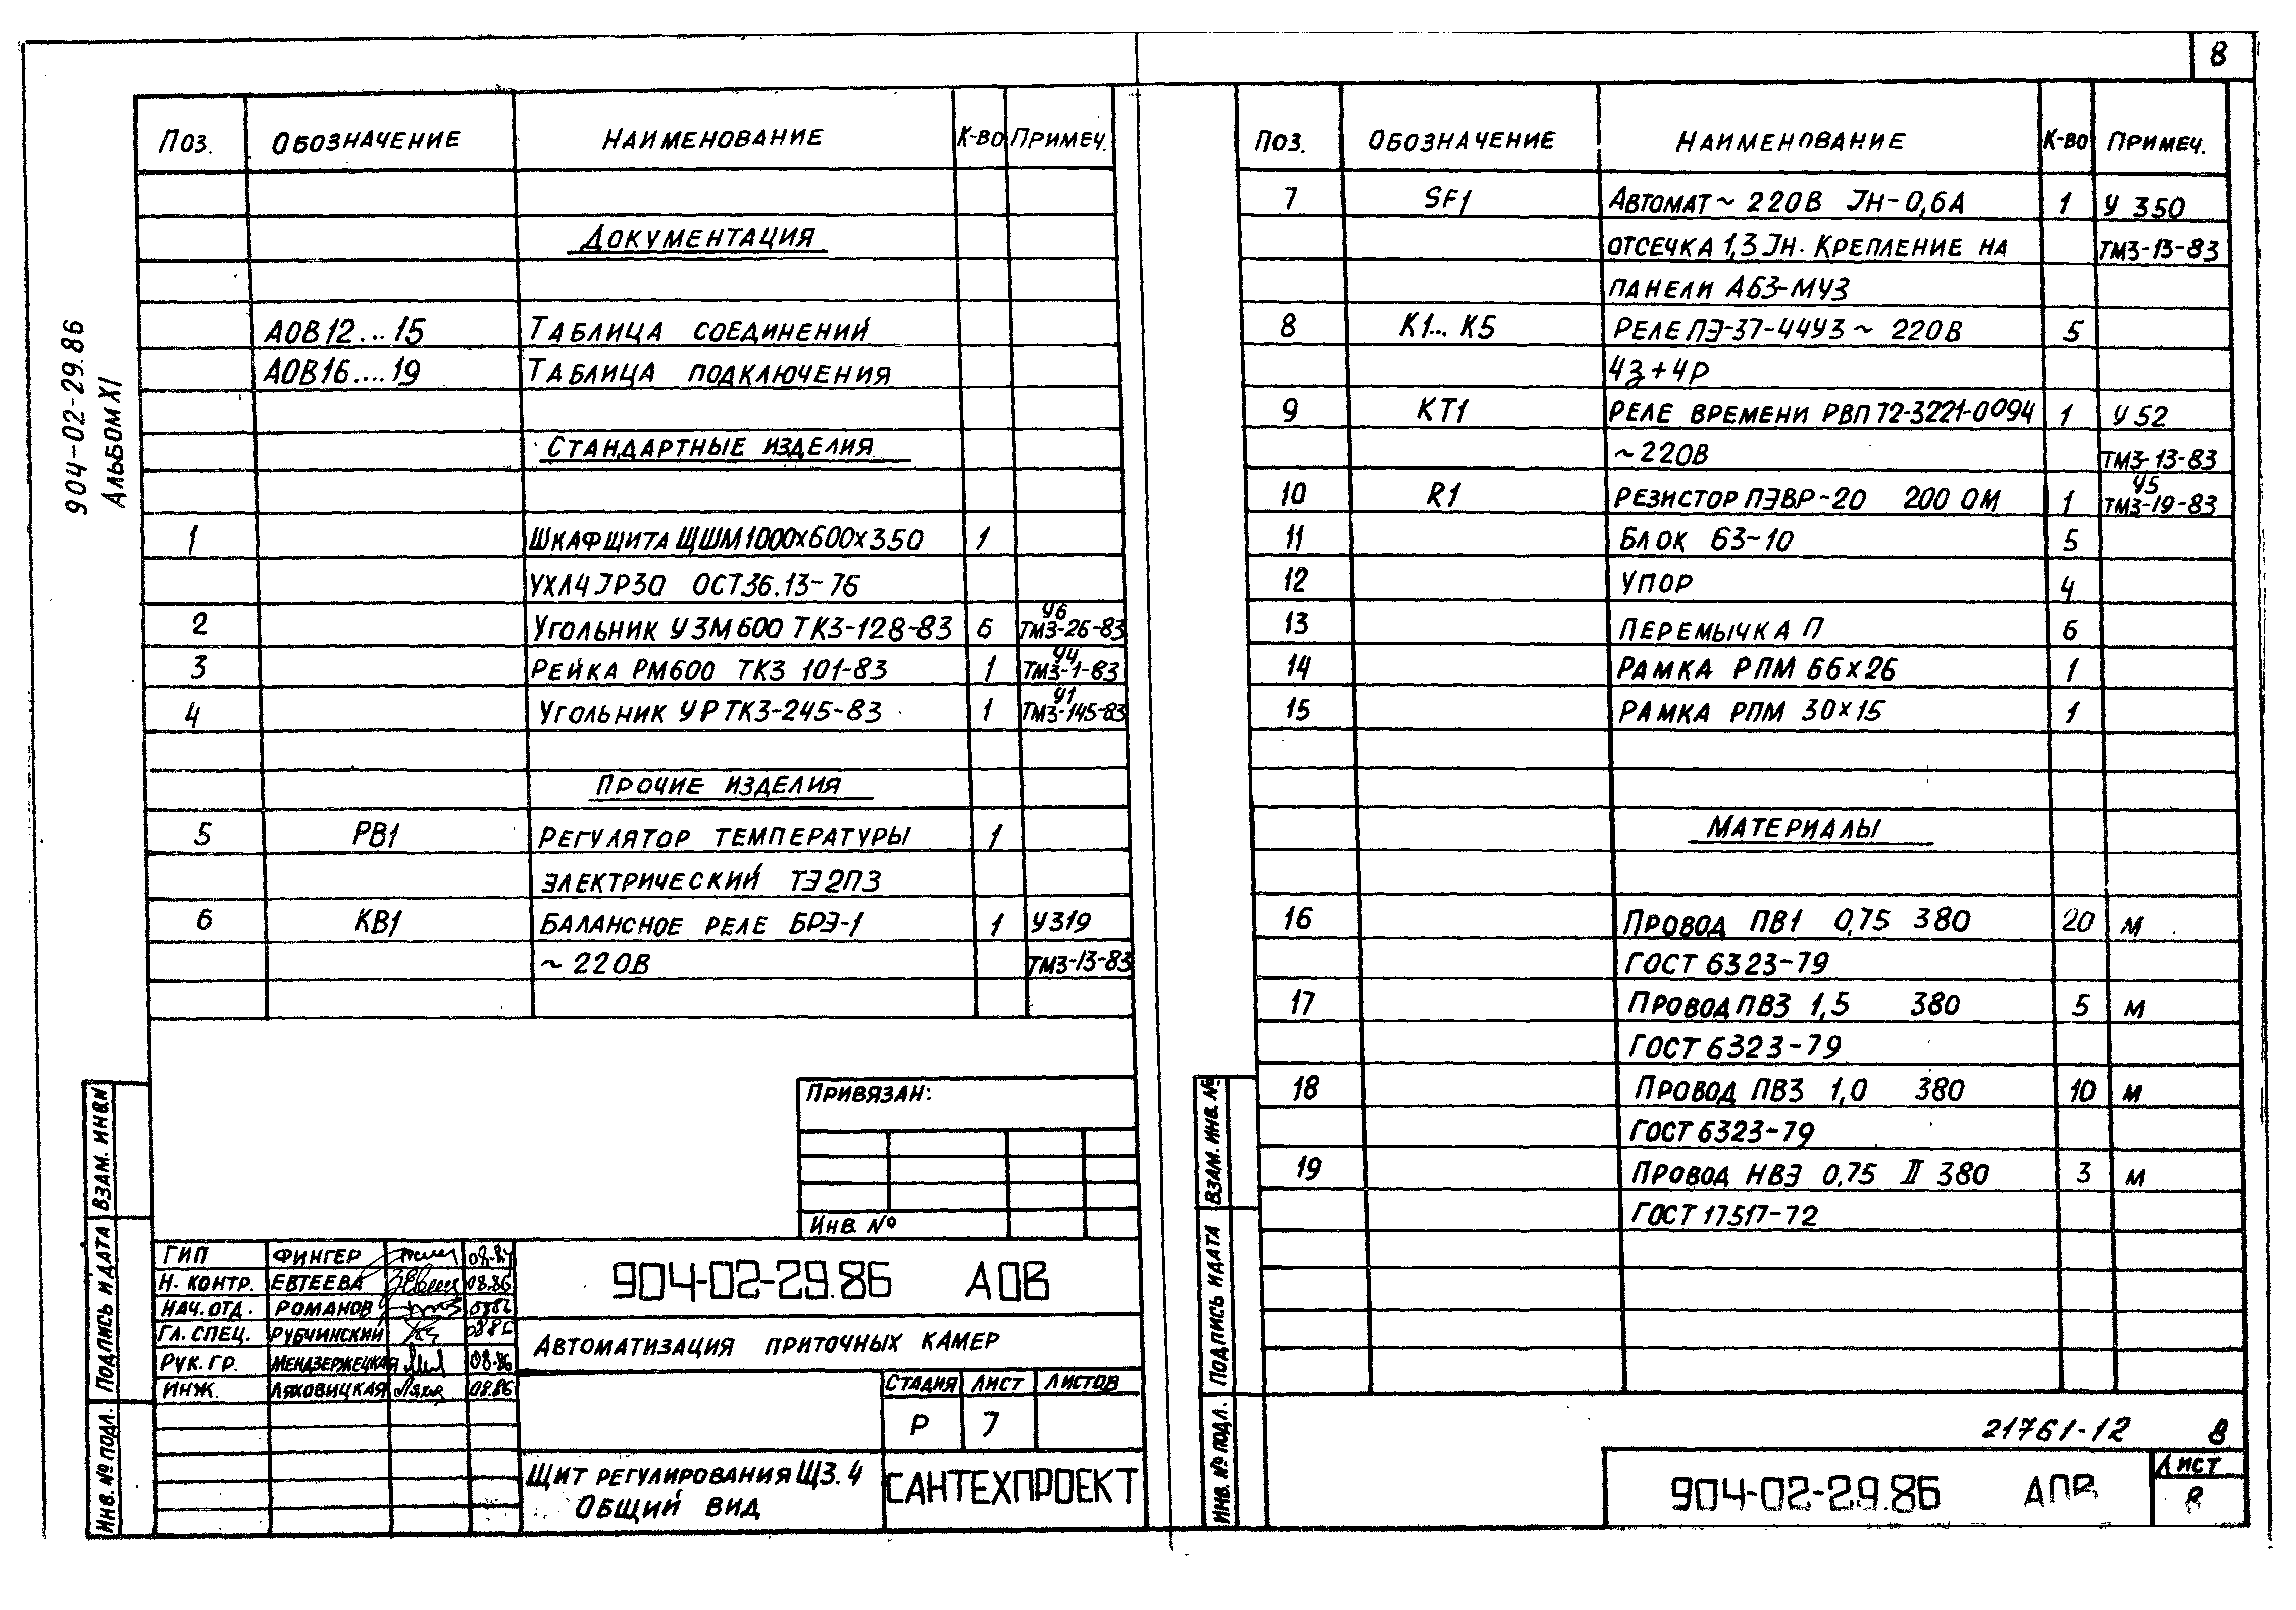 8
904-02-29.86
Альбом XI
Поз. Обозначение Наименование К-во Примеч.
Документация
АОВ12...15 Таблица соединений
АОВ16....19 Таблица подключения
Стандартные изделия
1 Шкаф щита ЩШМ1000х600х350 1
УХЛ4 JР30 ОСТ36.13-76
2 Угольник УЗМ600 ТК3-128-83 6 У6 ТМ3-26-83
3 Рейка РМ600 ТК3 101-83 1 У4 ТМ3-1-83
4 Угольник УР ТК3-245-83 1 У1 ТМ3-145-83
Прочие изделия
5 РВ1 Регулятор температуры 1
электрический ТЭ2П3
6 КВ1 Балансное реле БРЭ-1 1 У319
~ 220В ТМ3-13-83
Привязан:
Инв. №
ГИП Фингер
Н. контр. Евтеева 08.86
Нач. отд. Романов
Гл. спец. Рубчинский
Рук. гр. Мендзержецкая 08.86
Инж. Ляховицкая 08.86
904-02-29.86 АОВ
Автоматизация приточных камер
Стадия Лист Листов
Р 7
Щит регулирования Щ3.4
Общий вид
САНТЕХПРОЕКТ
Взам. инв. №
Подпись и дата
Инв. № подл.
Поз. Обозначение Наименование К-во Примеч.
7 SF1 Автомат ~ 220В Jн-0,6А 1 У 350
отсечка 1,3 Jн. Крепление на ТМ3-13-83
панели А63-МУ3
8 К1... К5 Реле ПЭ-37-44У3 ~ 220В 5
4з+4р
9 КТ1 Реле времени РВП72-3221-0094 1 У 52
~220В ТМ3-13-83
10 R1 Резистор ПЭВР-20 200 Ом 1 У5 ТМ3-19-83
11 Блок Б3-10 5
12 Упор 4
13 Перемычка П 6
14 Рамка РПМ 66х26 1
15 Рамка РПМ 30х15 1
Материалы
16 Провод ПВ1 0,75 380 20 м
ГОСТ 6323-79
17 Провод ПВ3 1,5 380 5 м
ГОСТ 6323-79
18 Провод ПВ3 1,0 380 10 м
ГОСТ 6323-79
19 Провод НВЭ 0,75 II 380 3 м
ГОСТ 17517-72
21761-12 8
904-02-29.86 АОВ
Лист
8
Взам. инв. №
Подпись и дата
Инв. № подл.